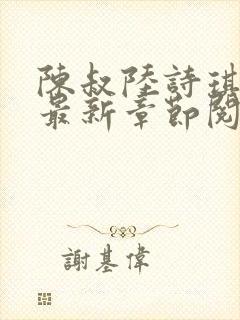 陳叔陸詩琪
最新章節閱
謝基偉